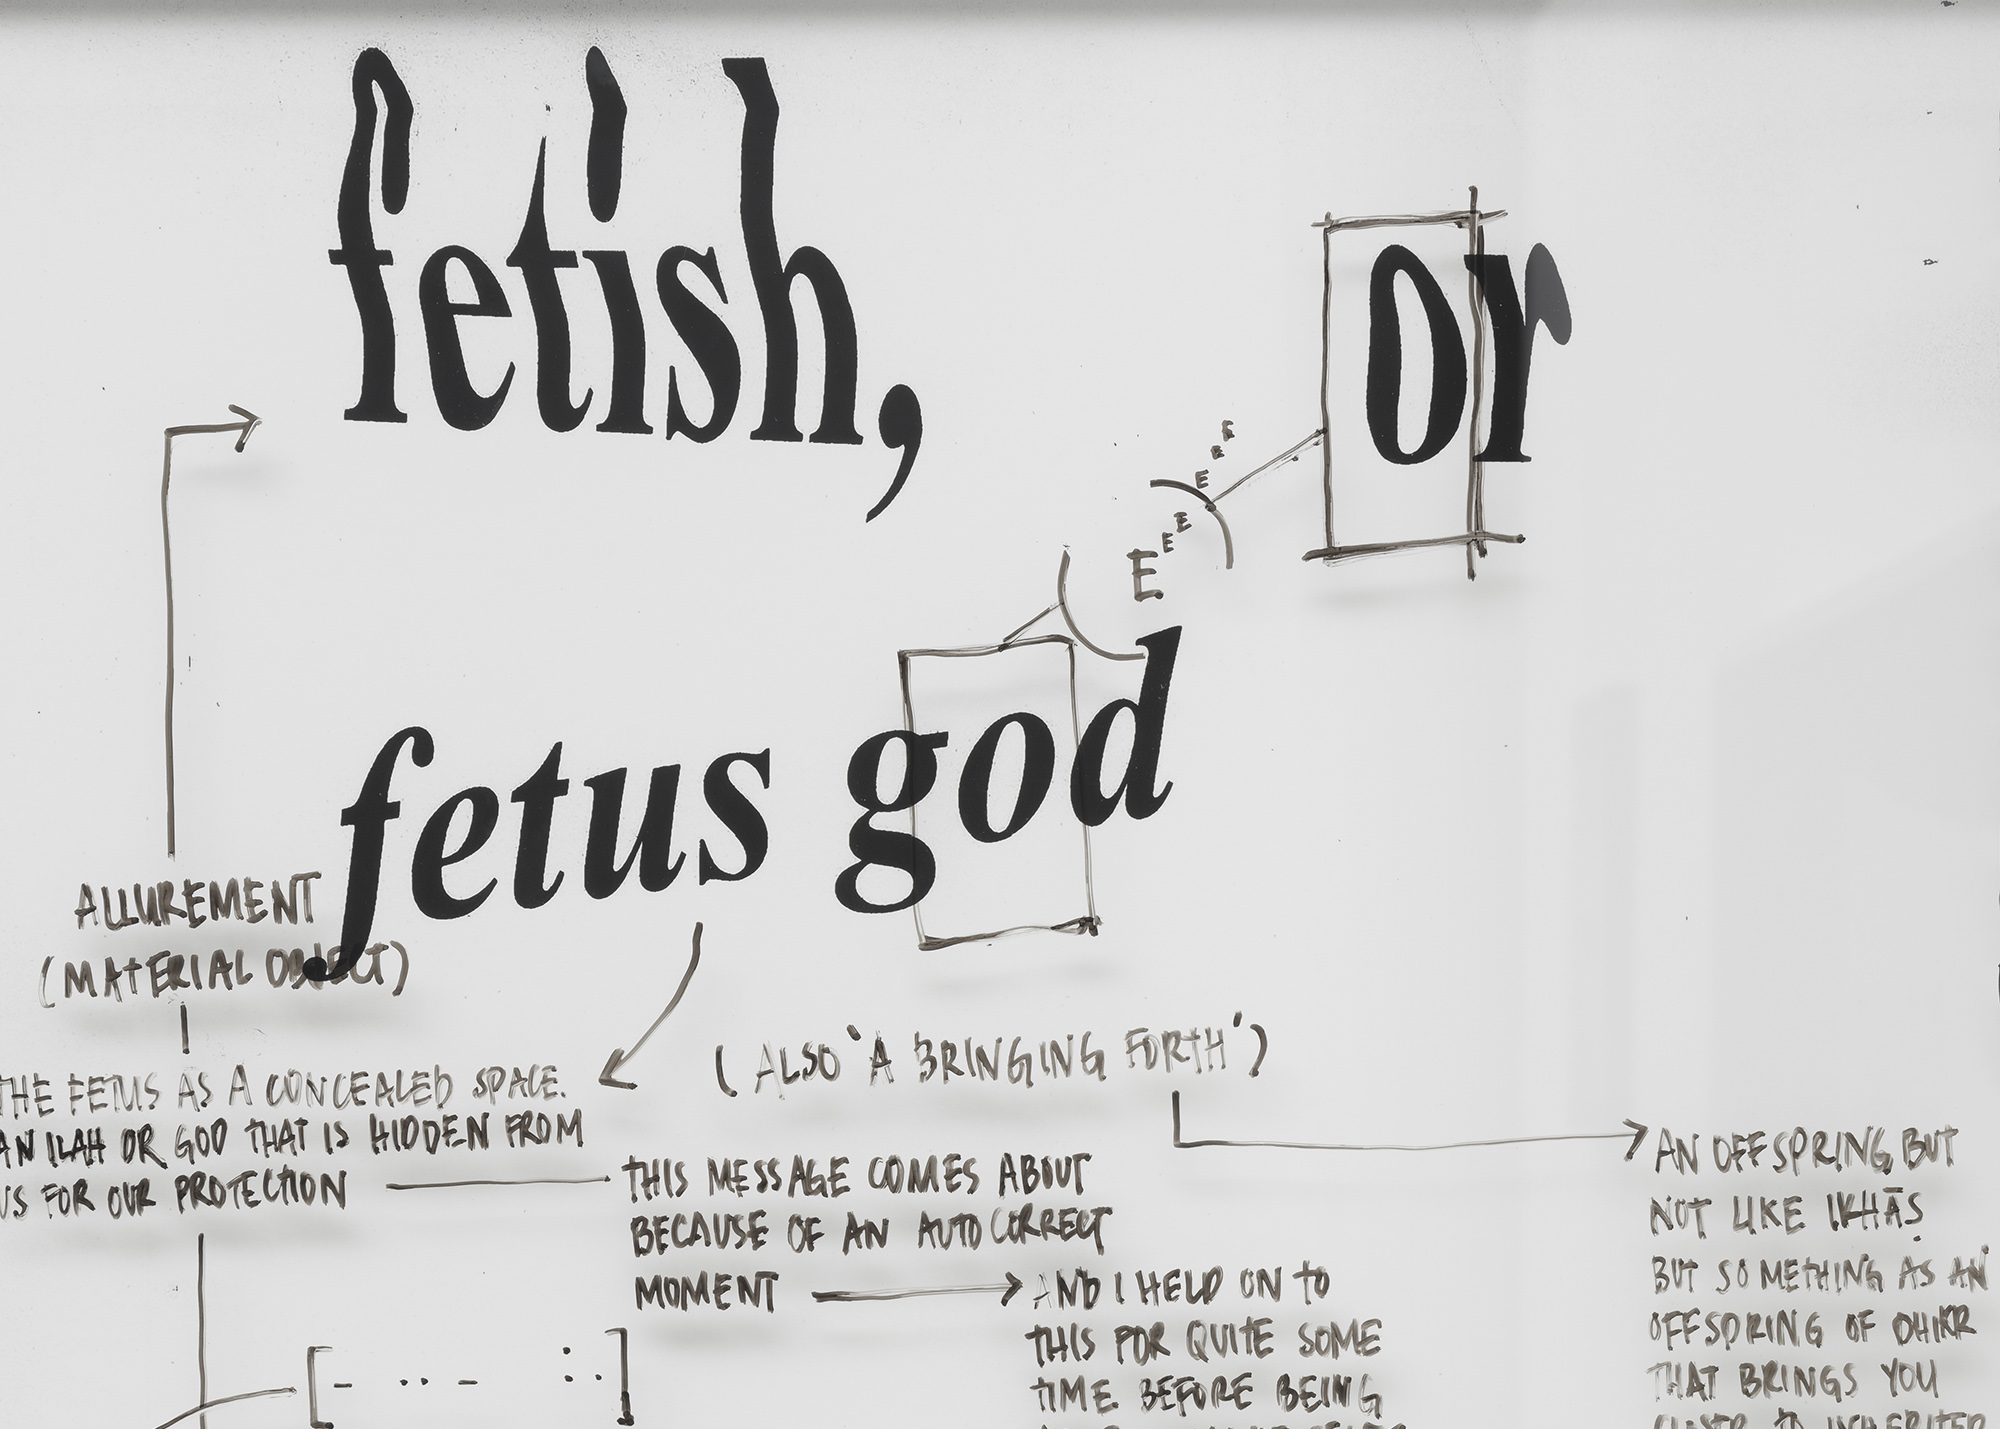 fetish,
or
E E E E E E
fetus god
ALLUREMENT
(MATERIAL OBJECT)
(ALSO 'A BRINGING FORTH')
THE FETUS AS A CONCEALED SPACE.
AN ILAH OR GOD THAT IS HIDDEN FROM
US FOR OUR PROTECTION
THIS MESSAGE COMES ABOUT
BECAUSE OF AN AUTOCORRECT
MOMENT
AND I HELD ON TO
THIS FOR QUITE SOME
TIME. BEFORE BEING
AN OFFSPRING, BUT
NOT LIKE IKHĀṢ
BUT SOMETHING AS AN
OFFSPRING OF DHIKR
THAT BRINGS YOU
CLOSER TO INHERITED